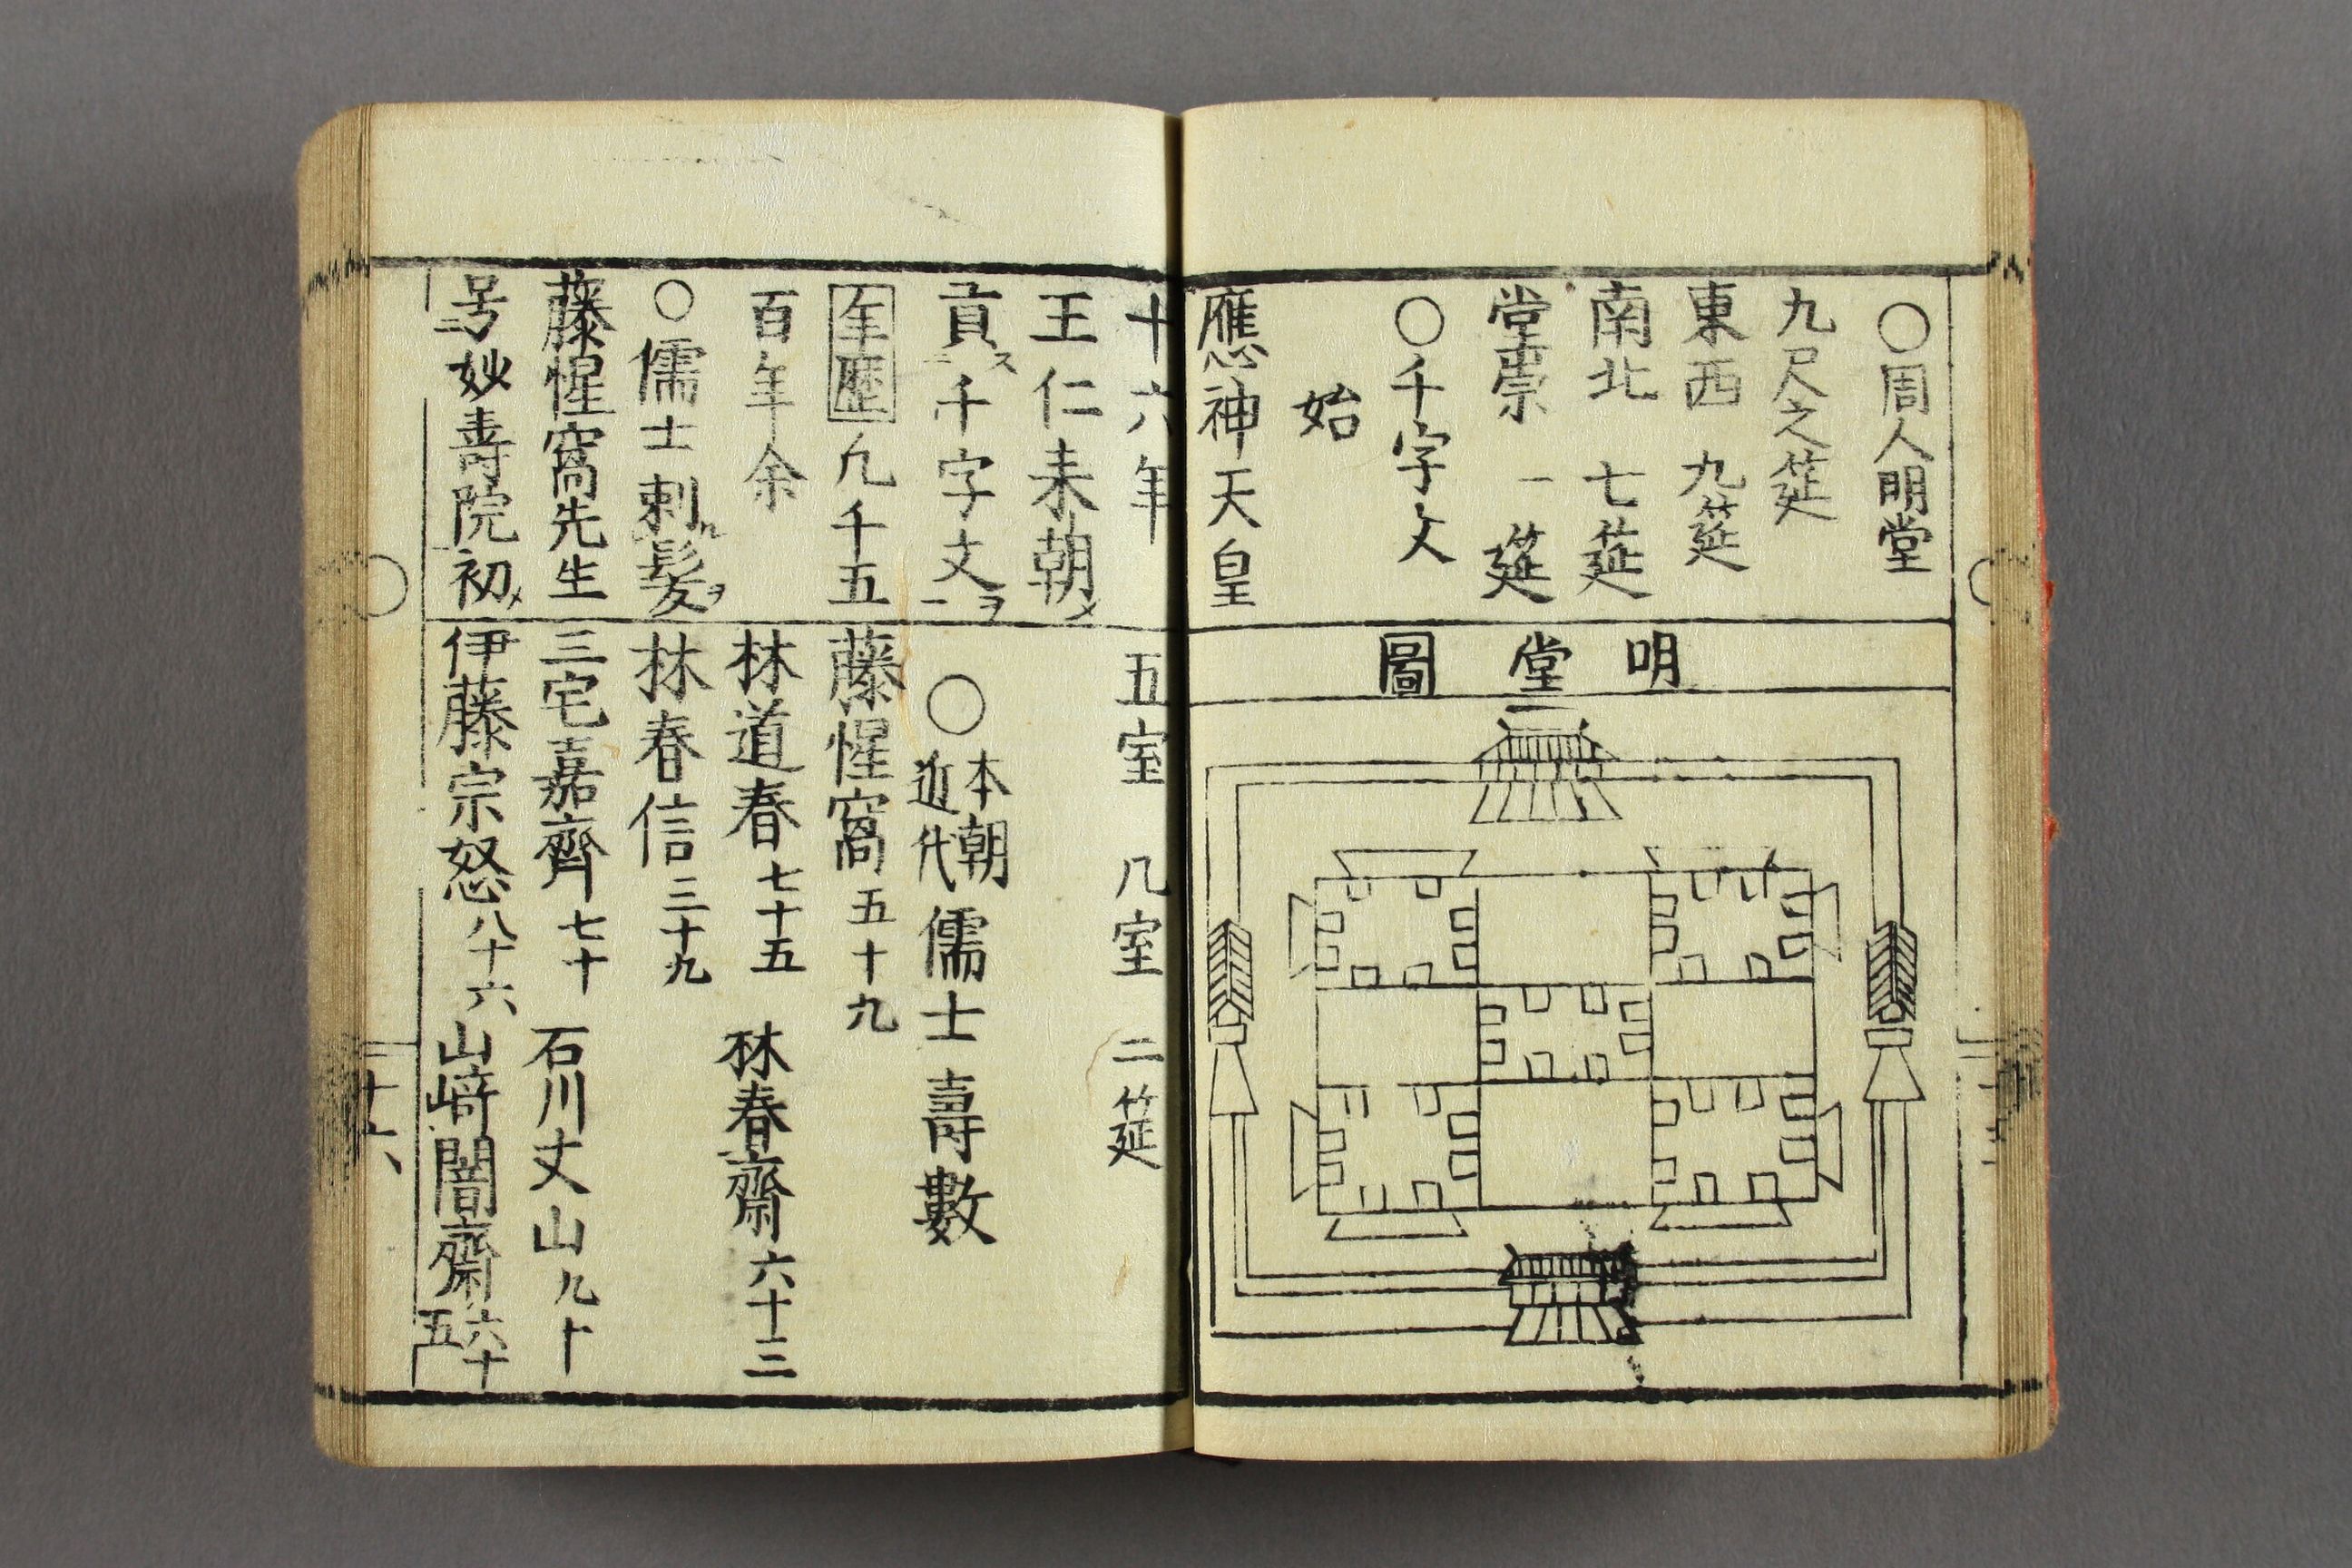 ○周人明堂
九尺之筵
東西 九筵
南北 七筵
堂崇 一筵
○千字文
始
應神天皇
明堂圖
十六年
王仁来朝メ
貢ス二千字文ヲ一
年歴 凡千五
百年余
○儒士剃髪ヲ
藤惺窩先生
号妙寿院初メ
五室 凡室 二筵
○本朝近代儒士壽數
藤惺窩五十九
林道春七十五 林春齋六十三
林春信三十九
三宅嘉齊七十 石川丈山九十
伊藤宗恕八十六 山﨑闇齋六十五